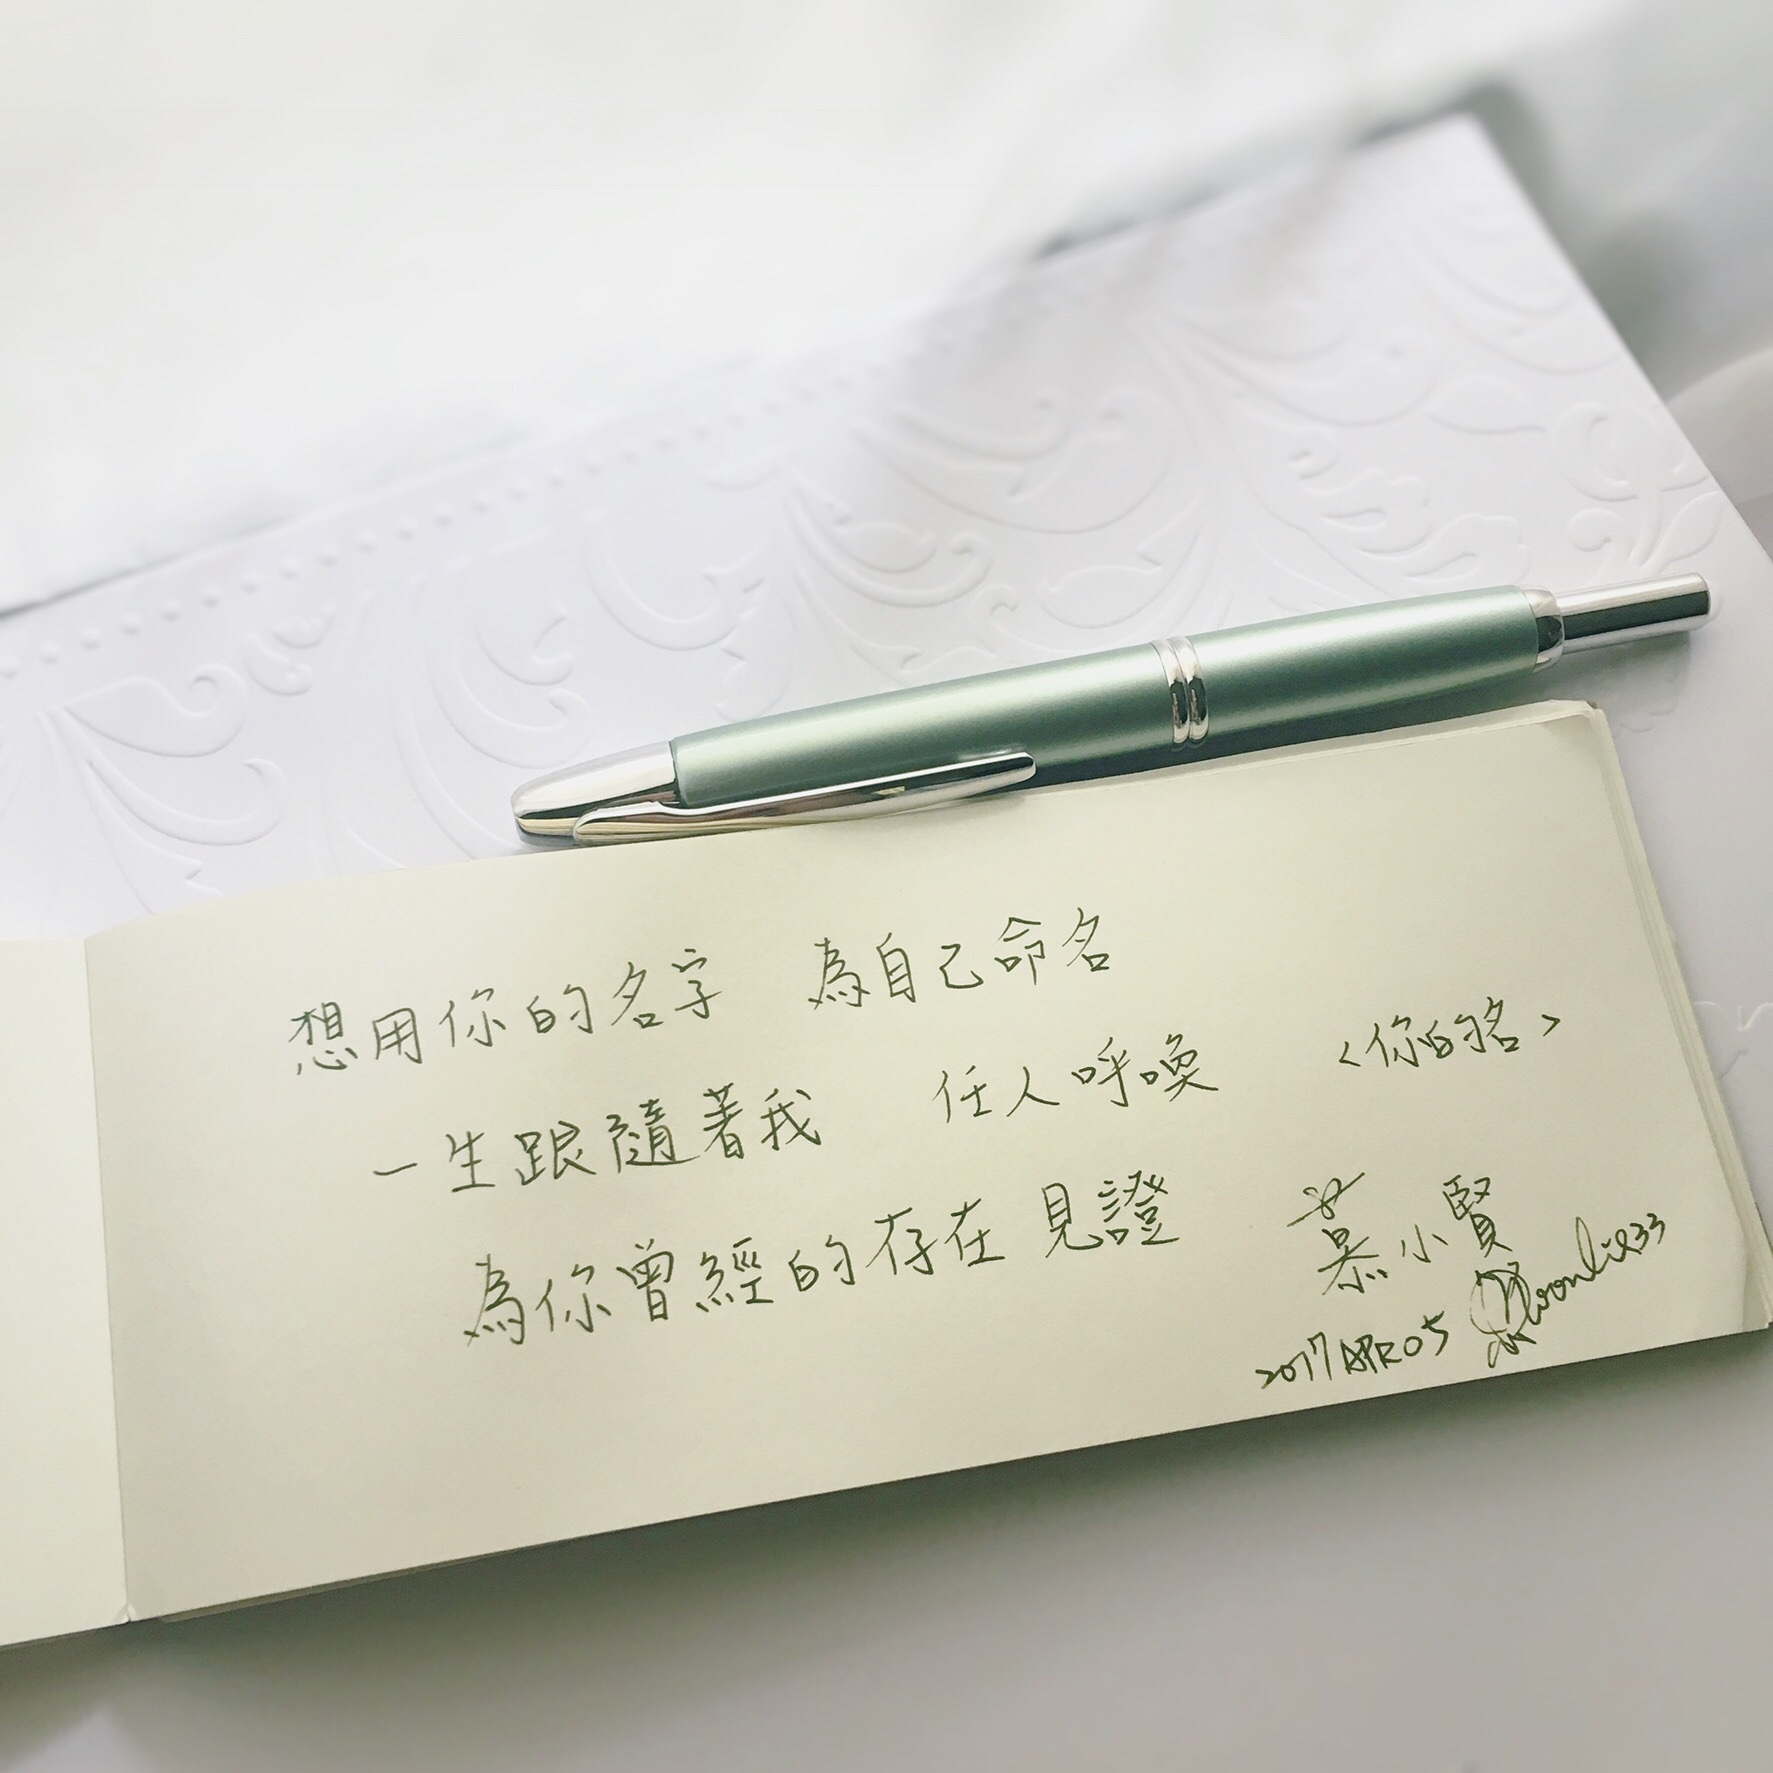 想用你的名字 為自己命名
一生跟隨著我 任人呼喚 <你的名>
為你曾經的存在見證 慕小賢
2017 APR 05